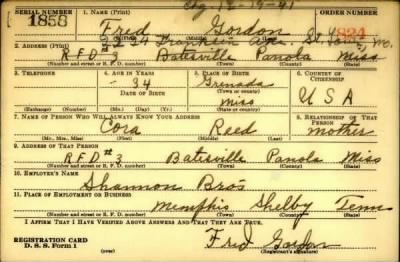 Chg. 12-19-41
SERIAL NUMBER 1. NAME (Print) ORDER NUMBER
1858 Fred Gordon 824
2224 Franklin Ave. St. Louis, Mo.
2. ADDRESS (Print)
R.F.D #3 Batesville Panola Miss
(Number and street or R. F. D. number) (Town) (County) (State)
3. TELEPHONE 4. AGE IN YEARS 5. PLACE OF BIRTH 6. COUNTRY OF CITIZENSHIP
34 Grenada
DATE OF BIRTH (Town or county) U S A
Miss
(Exchange) (Number) (Mo.) (Day) (Yr.) (State or country)
7. NAME OF PERSON WHO WILL ALWAYS KNOW YOUR ADDRESS 8. RELATIONSHIP OF THAT PERSON
Cora Reed mother
(Mr., Mrs., Miss) (First) (Middle) (Last)
9. ADDRESS OF THAT PERSON
R.F.D #3 Batisville Panola Miss
(Number and street or R. F. D. number) (Town) (County) (State)
10. EMPLOYER'S NAME
Shannon Bros
11. PLACE OF EMPLOYMENT OR BUSINESS
Memphis Shelby Tenn
(Number and street or R. F. D. number) (Town) (County) (State)
I AFFIRM THAT I HAVE VERIFIED ABOVE ANSWERS AND THAT THEY ARE TRUE.
REGISTRATION CARD Fred Gordon
D. S. S. Form 1 (Registrant's signature)